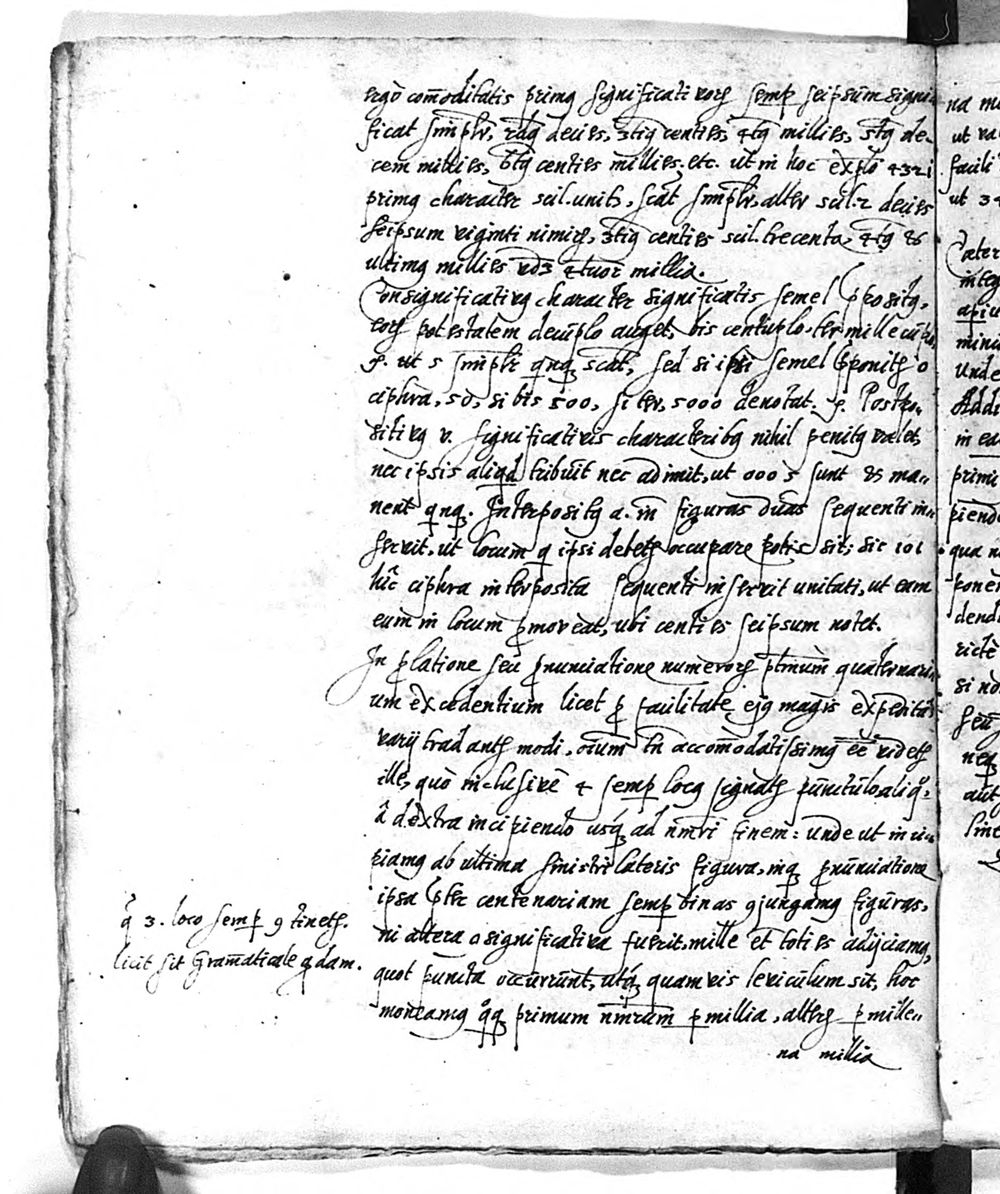 ergò com̃oditatis primꝰ significativorꝫ semp seipsum signi-
ficat simplr, 2dꝰ decies, 3tiꝰ centies, 4tꝰ millies, 5tꝰ de-
cem millies, 6tꝰ centies millies, etc. ut in hoc explo 4321
primꝰ character scil. unitꝭ, scat simplr, alter scil. 2 decies
seipsum viginti nimirꝫ, 3tiꝰ centies scil. trecenta, 4tꝰ &
ultimꝰ millies vdꝫ 4tuor millia.
Consignificativꝰ character significatis semel ꝓpositꝰ,
eorꝫ potestatem decuplo auget, bis centuplo, ter millecupl
ut 5 simplr qnqꝫ scat, sed si ipsi semel ponitꝫ 0
ciphra, 50, si bis 500, si ter, 5000 denotat. Postpo-
sitivꝰ v. significativis characteribꝰ nihil penitꝰ valet,
nec ipsis aliqd tribuit nec adimit, ut 0005 sunt & ma-
nent qnqꝫ. Interpositꝰ a. in figuras duas sequenti in-
servit, ut locum q ipsi debetꝫ occupare potis sit; sic 101
hic ciphra interposita sequenti inservit unitati, ut eam
eum in locum ꝓmoveat, ubi centies seipsum notet.
In ꝓlatione seu ꝓnunciatione numerorꝫ ptmum quaternari-
um excedentium licet ꝓ facilitate ejꝰ magis expedita
varij tradantꝫ modi, oium tn accom̃odatissimꝰ ee videtꝫ
ille, quò inclusive 4 semp locꝰ signatꝫ punctulo aliq̊,
à dextra incipiendo usqꝫ ad nmri finem: unde ut inci-
piamꝰ ab ultima sinistri lateris figura, inqꝫ ꝓnunciatione
ipsa pter centenariam semp binas 9jungamꝰ figuras,
ni altera 0 significativa fuerit, mille et toties adijciamꝰ,
quot puncta occurrunt, utqꝫ quamvis leviculum sit, hoc
moneamꝰ q̊qꝫ primum nmrum p millia, alterꝫ p mille-
na millia
q̊ 3. loco semp 9tinetꝫ.
licit sit Gram̃aticale qdam.